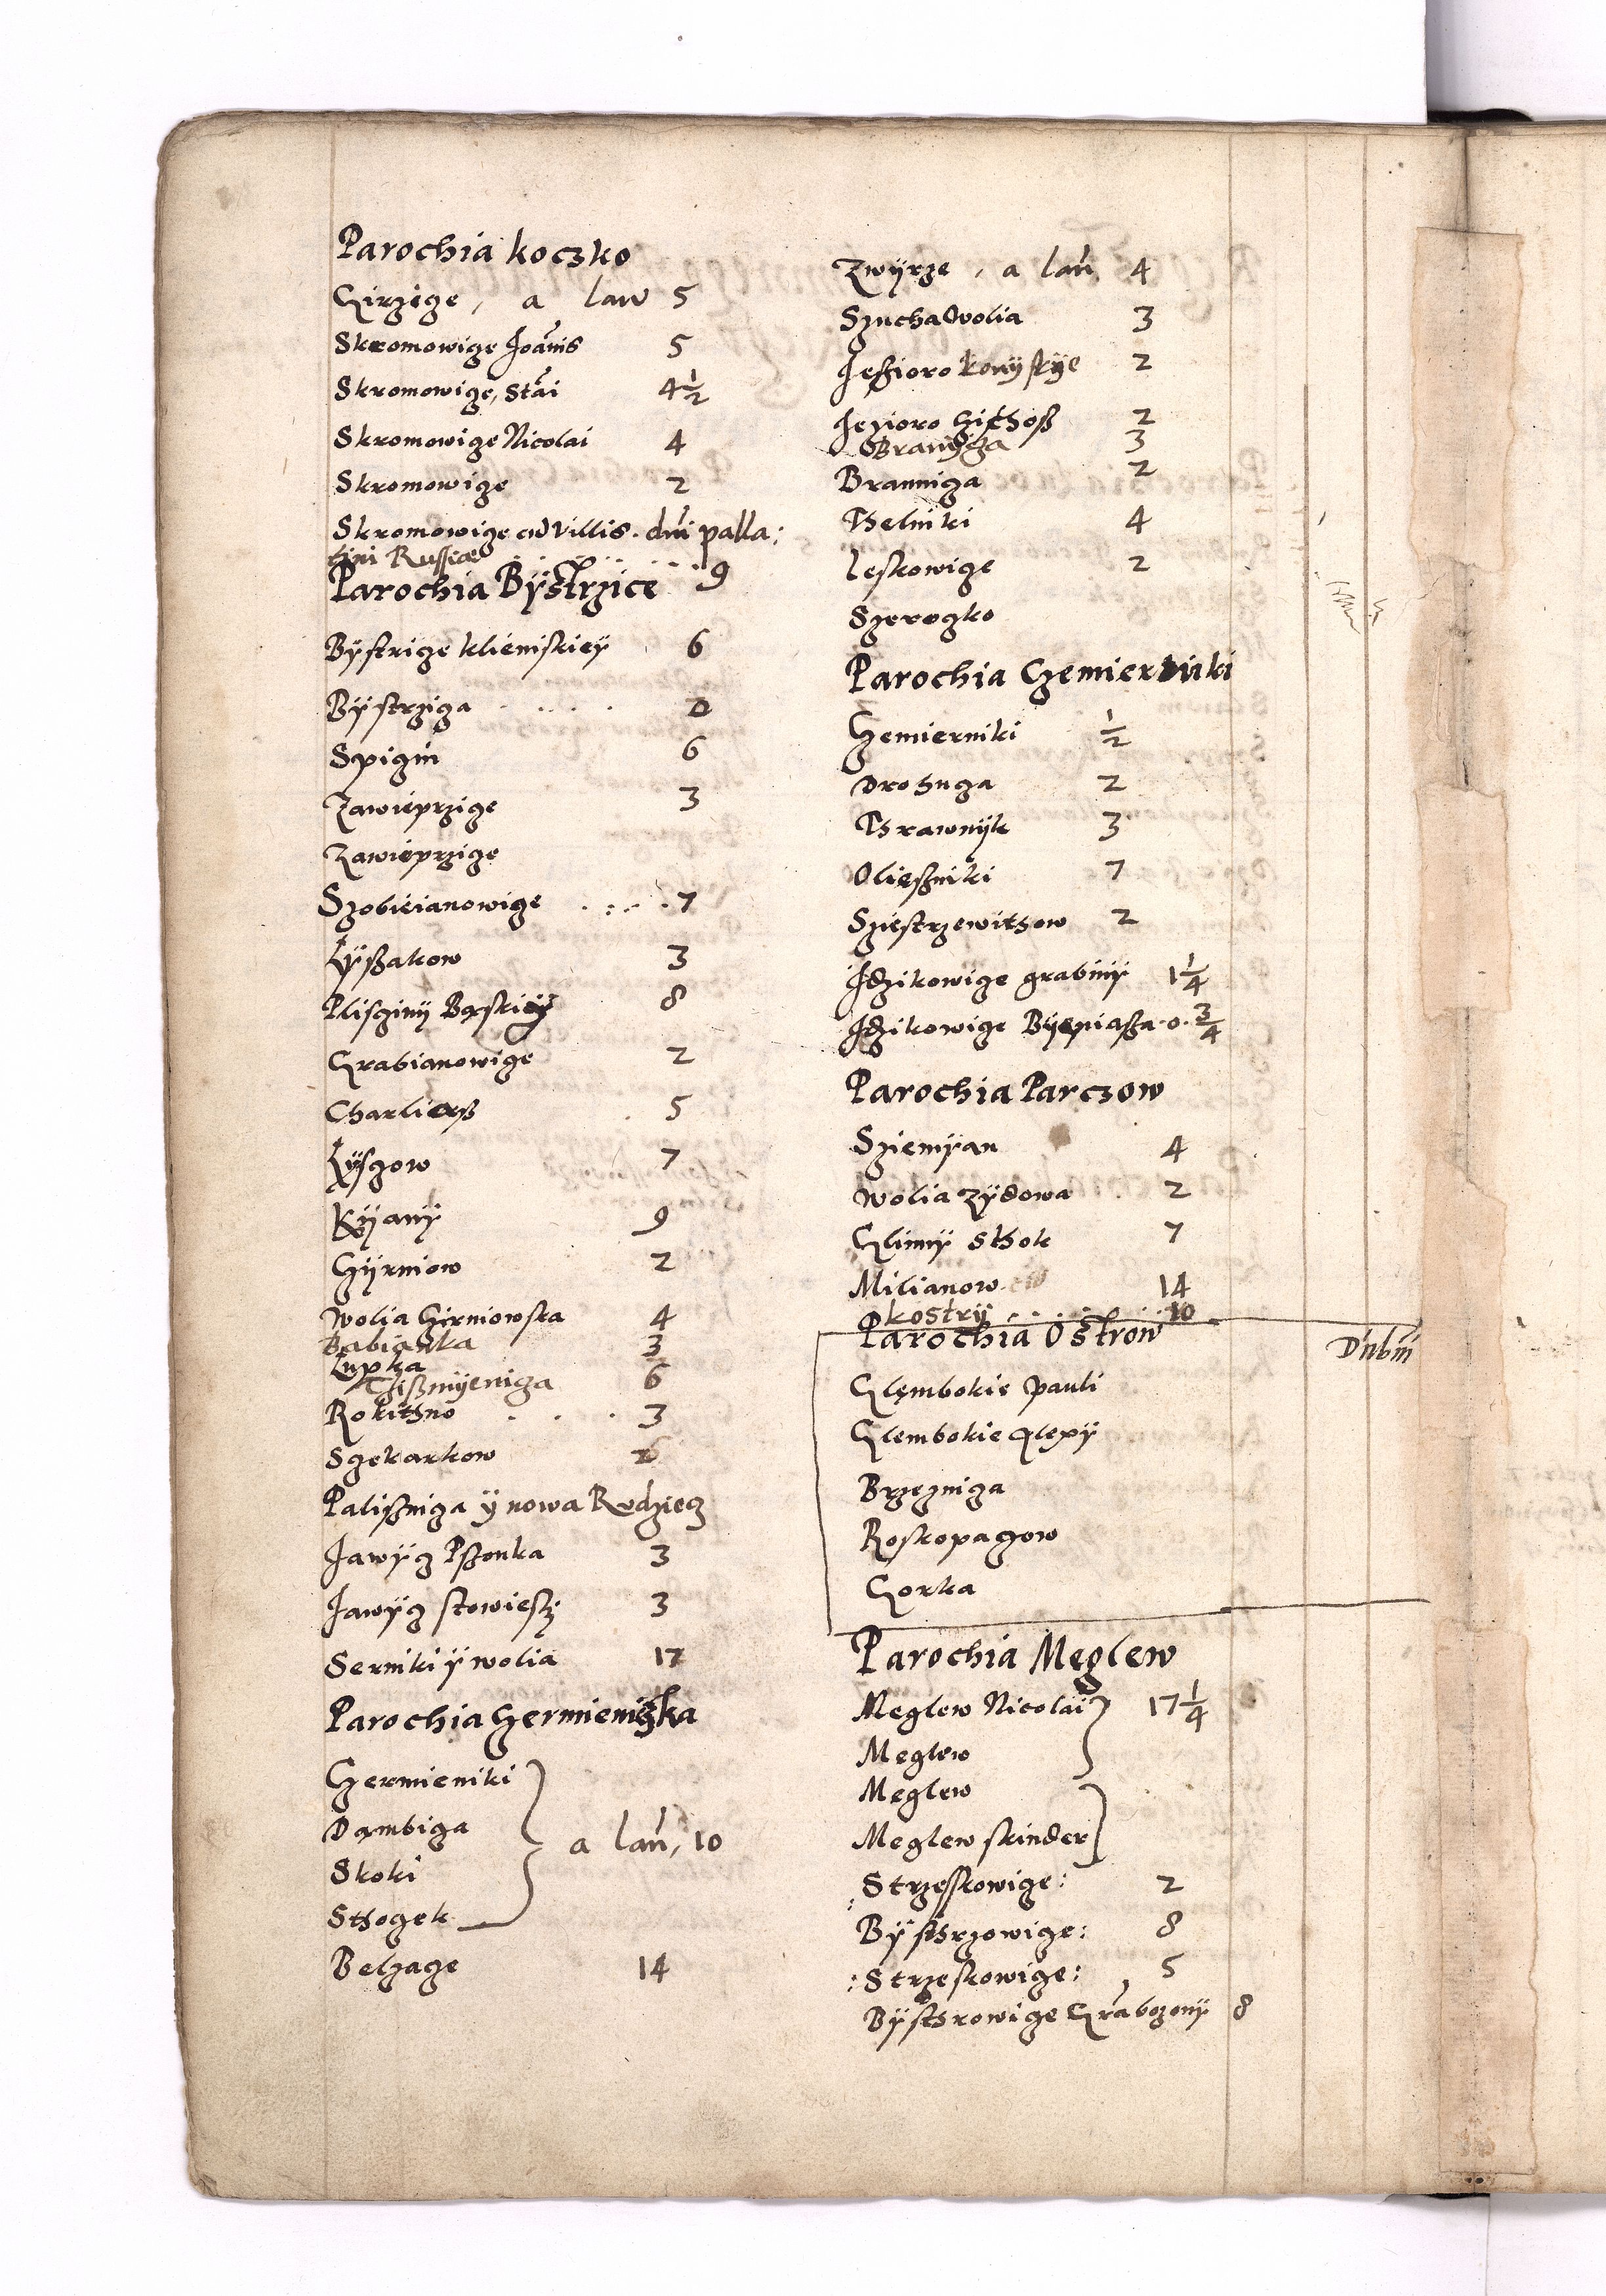 Parochia koczko
Girzicze, a law 5
Skromowicze Joānis 5
Skromowicze, Stāi 4½
Skromowicze Nicolai 4
Skromowicze 2
Skromowicze cū villis. dni palla:
tini Russiae . . . . . . 9
Parochia Bÿstrzice
Bÿstricze kliemskieÿ 6
Bÿstrzicza . . . . . 2
Spiczin 6
Zawieprzicze 3
Zawieprzicze
Szobieianowicze . : . . . 7
Łÿssakow 3
Plisczinÿ Bąskieÿ 8
Grabianowicze 2
Charlierß . 5
Łÿsczow 7
Kÿianÿ 9
Gÿrniow 2
Wolia Girniowska 4
Babianka 3
Łupka
Cissmÿenicza 6
Rokithno . . . 3
Sczekarkow 6
Palissnicza ÿ nowa Rudziecz
Jawÿcz Pssonka 3
Jawÿcz stowiesz 3
Serniki ÿ wolia 17
Parochia Czermieniczka
Czermieniki
Dąmbicza
Skoki
a lań, 10
Sthoczek
Belzącze 14
Zwÿrze, a lań, 4
Szucha Wolia 3
Jeßioro konÿskÿe 2
Jezioro Githoß 2
Branÿcza 3
Brannicza 2
Thelniki 4
Leskowicze 2
Szeroczko
Parochia Czemierniki
Czemierniki ½
Drohucza 2
Thrawnÿk 3
Oliessniki 7
Sziestrzewithow 2
Jdzikowicze grabinÿ 1¼
Jdzikowicze Bÿepiaßa . o . ¾
Parochia Parczow
Sziemÿan 4
Wolia Zÿdowa . 2
Glinnÿ Sthok 7
Milianow 14
Okostrÿ . . . . . . 10
Parochia Ostrow
D'nbm̄
Glęmbokie Pauli
Glembokie Qlepÿ
Brzeznicza
Roskopaczow
Gorka
Parochia Meglew
Meglew Nicolai 17¼
Meglew
Meglew
Meglew skinder
Strzesskowicze: 2
Bÿsthrzowicze: 8
:Strzeskowicze: 5
Bÿsthrowicze Grabozonÿ 8